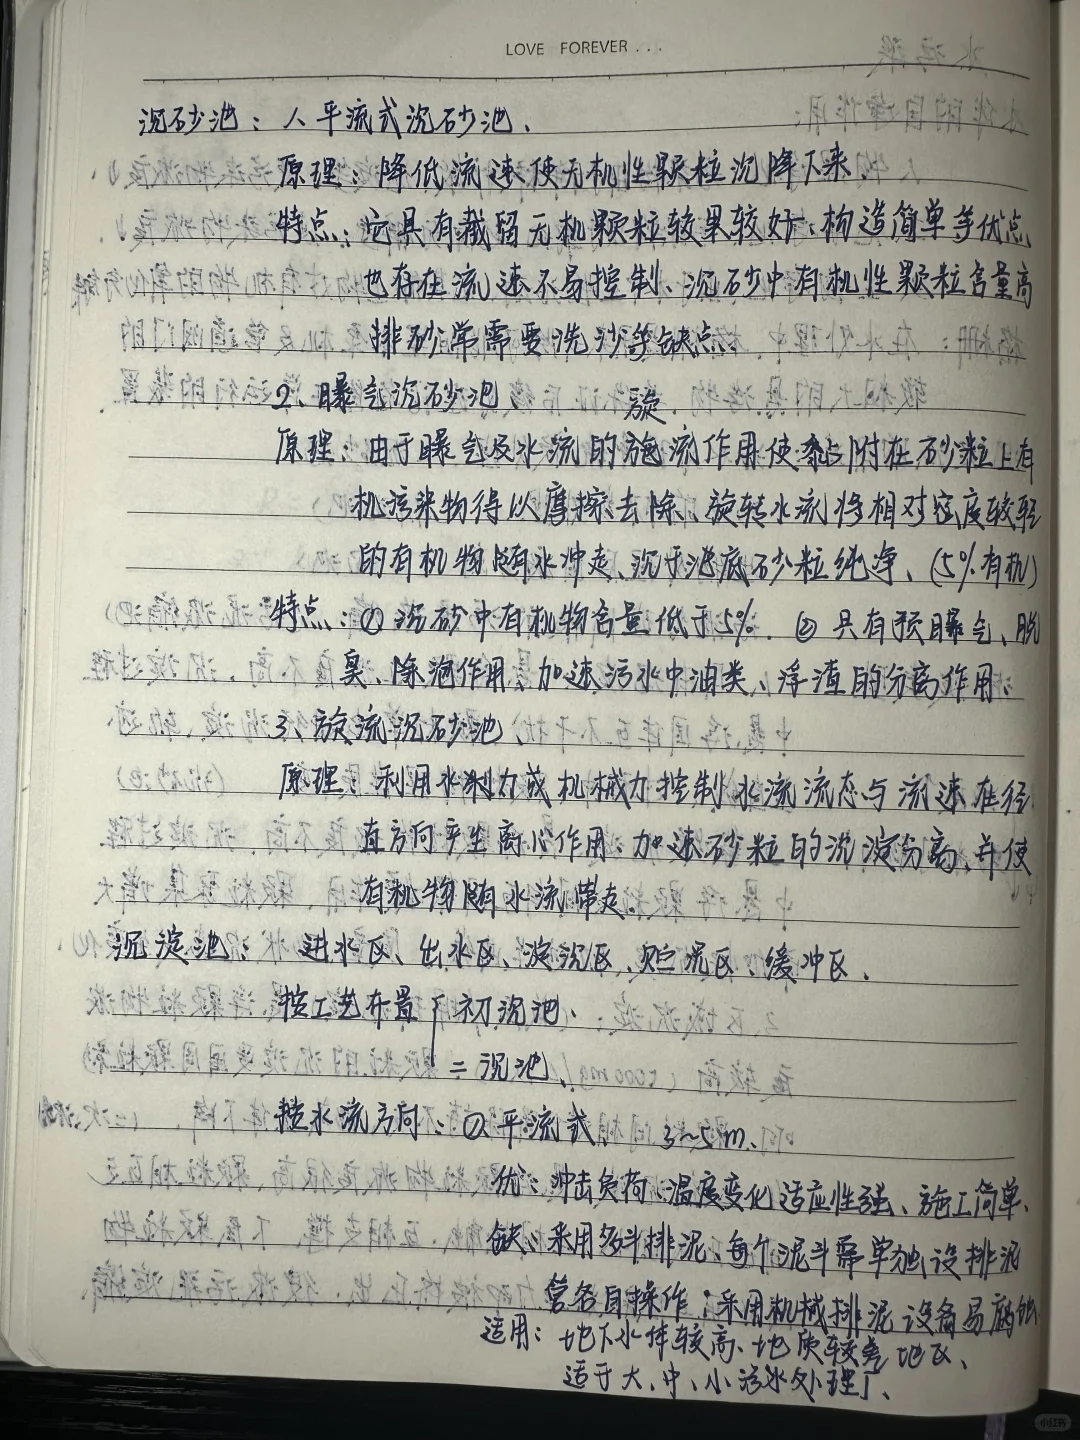 LOVE FOREVER...
沉砂池：1、平流式沉砂池、
原理：降低流速使无机性颗粒沉降下来
特点：它具有截留无机颗粒较果较好、构造简单等优点
也存在流速不易控制、沉砂中有机性颗粒含量高
排砂常需要洗沙等缺点。
2、曝气沉砂池
旋
原理：由于曝气及水流的旋流作用使黏附在砂粒上有
机污染物得以摩擦去除、旋转水流将相对密度较轻
的有机物随水冲走、沉于池底砂粒纯净、(5%有机)
特点：①沉砂中有机物含量低于5%. ②具有预曝气、脱
臭、除泡作用、加速污水中油类、浮渣的分离作用。
3、旋流沉砂池
原理：利用水力或机械力控制水流流态与流速在径
直方向产生离心作用、加速砂粒的沉淀分离、并使
有机物随水流带走.
沉淀池：进水区、出水区、淀沉区、贮泥区、缓冲区、
按工艺布置 初沉池、
二沉池、
按水流方向：①平流式 3~5m、
优：冲击负荷、温度变化适应性强、施工简单、
缺：采用多斗排泥、每个泥斗需单独设排泥
管各自操作；采用机械排泥设备易腐蚀.
适用：地下水体较高、地质较差地区、
适于大、中、小污水处理厂、